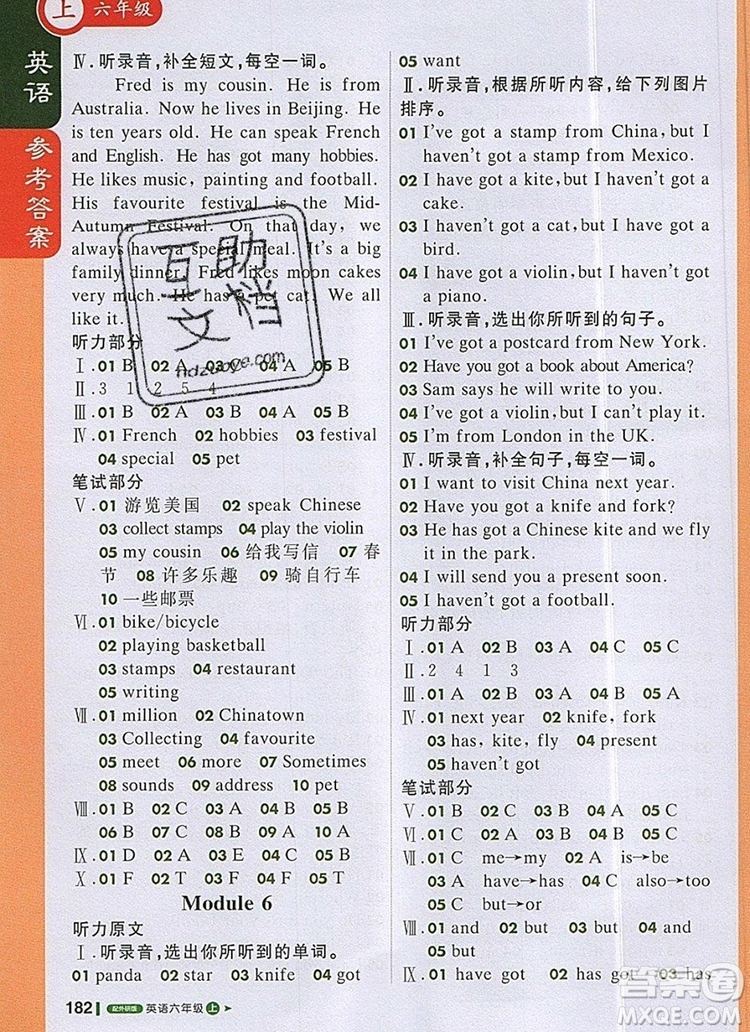 上 六年级
英语
参考答案
Ⅳ.听录音,补全短文,每空一词。
Fred is my cousin. He is from
Australia. Now he lives in Beijing. He
is ten years old. He can speak French
and English. He has got many hobbies.
He likes music, painting and football.
His favourite festival is the Mid-
Autumn Festival. On that day, we
always have a special meal. It's a big
family dinner. Fred likes moon cakes
very much. He has a pet cat. We all
like it.
听力部分
Ⅰ.01 B 02 A 03 C 04 A 05 B
Ⅱ.3 1 2 5 4
Ⅲ.01 B 02 A 03 B 04 B 05 A
Ⅳ.01 French 02 hobbies 03 festival
04 special 05 pet
笔试部分
Ⅴ.01 游览美国 02 speak Chinese
03 collect stamps 04 play the violin
05 my cousin 06 给我写信 07 春
节 08 许多乐趣 09 骑自行车
10 一些邮票
Ⅵ.01 bike/bicycle
02 playing basketball
03 stamps 04 restaurant
05 writing
Ⅶ.01 million 02 Chinatown
03 Collecting 04 favourite
05 meet 06 more 07 Sometimes
08 sounds 09 address 10 pet
Ⅷ.01 B 02 C 03 A 04 B 05 B
06 B 07 C 08 B 09 A 10 B
Ⅸ.01 D 02 A 03 E 04 C 05 B
Ⅹ.01 F 02 T 03 F 04 F 05 T
Module 6
听力原文
Ⅰ.听录音,选出你所听到的单词。
01 panda 02 star 03 knife 04 got
05 want
Ⅱ.听录音,根据所听内容,给下列图片
排序。
01 I've got a stamp from China, but I
haven't got a stamp from Mexico.
02 I have got a kite, but I haven't got a
cake.
03 I haven't got a cat, but I have got a
bird.
04 I have got a violin, but I haven't got
a piano.
Ⅲ.听录音,选出你所听到的句子。
01 I've got a postcard from New York.
02 Have you got a book about America?
03 Sam says he will write to you.
04 I've got a violin, but I can't play it.
05 I'm from London in the UK.
Ⅳ.听录音,补全句子,每空一词。
01 I want to visit China next year.
02 Have you got a knife and fork?
03 He has got a Chinese kite and we fly
it in the park.
04 I will send you a present soon.
05 I haven't got a football.
听力部分
Ⅰ.01 A 02 B 03 A 04 C 05 C
Ⅱ.2 4 1 3
Ⅲ.01 B 02 B 03 A 04 B 05 A
Ⅳ.01 next year 02 knife, fork
03 has, kite, fly 04 present
05 haven't got
笔试部分
Ⅴ.01 B 02 C 03 B 04 A 05 C
Ⅵ.01 C 02 A 03 B 04 B 05 C
Ⅶ.01 C me→my 02 A is→be
03 A have→has 04 C also→too
05 C but→or
Ⅷ.01 and 02 but 03 and 04 and
05 but
Ⅸ.01 have got 02 has 03 has
182 配外研版 英语六年级 上
互助
文档
答案圈
MXQE.COM